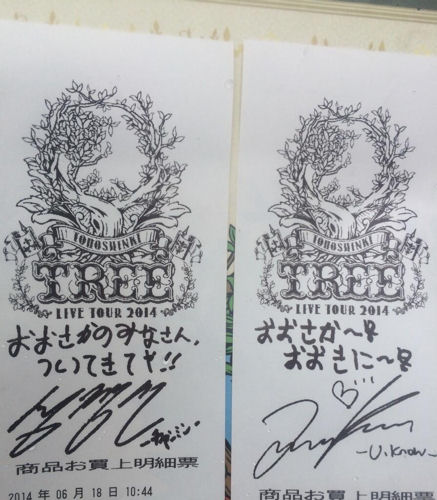 TOHOSHINKI
TREE
LIVE TOUR 2014
おおさかのみなさん、
ついてきてや!!
商品お買上明細票
2014 年 06 月 18 日 10:44
TOHOSHINKI
TREE
LIVE TOUR 2014
おおさか〜
おおきに〜
-U.Know-
商品お買上明細票